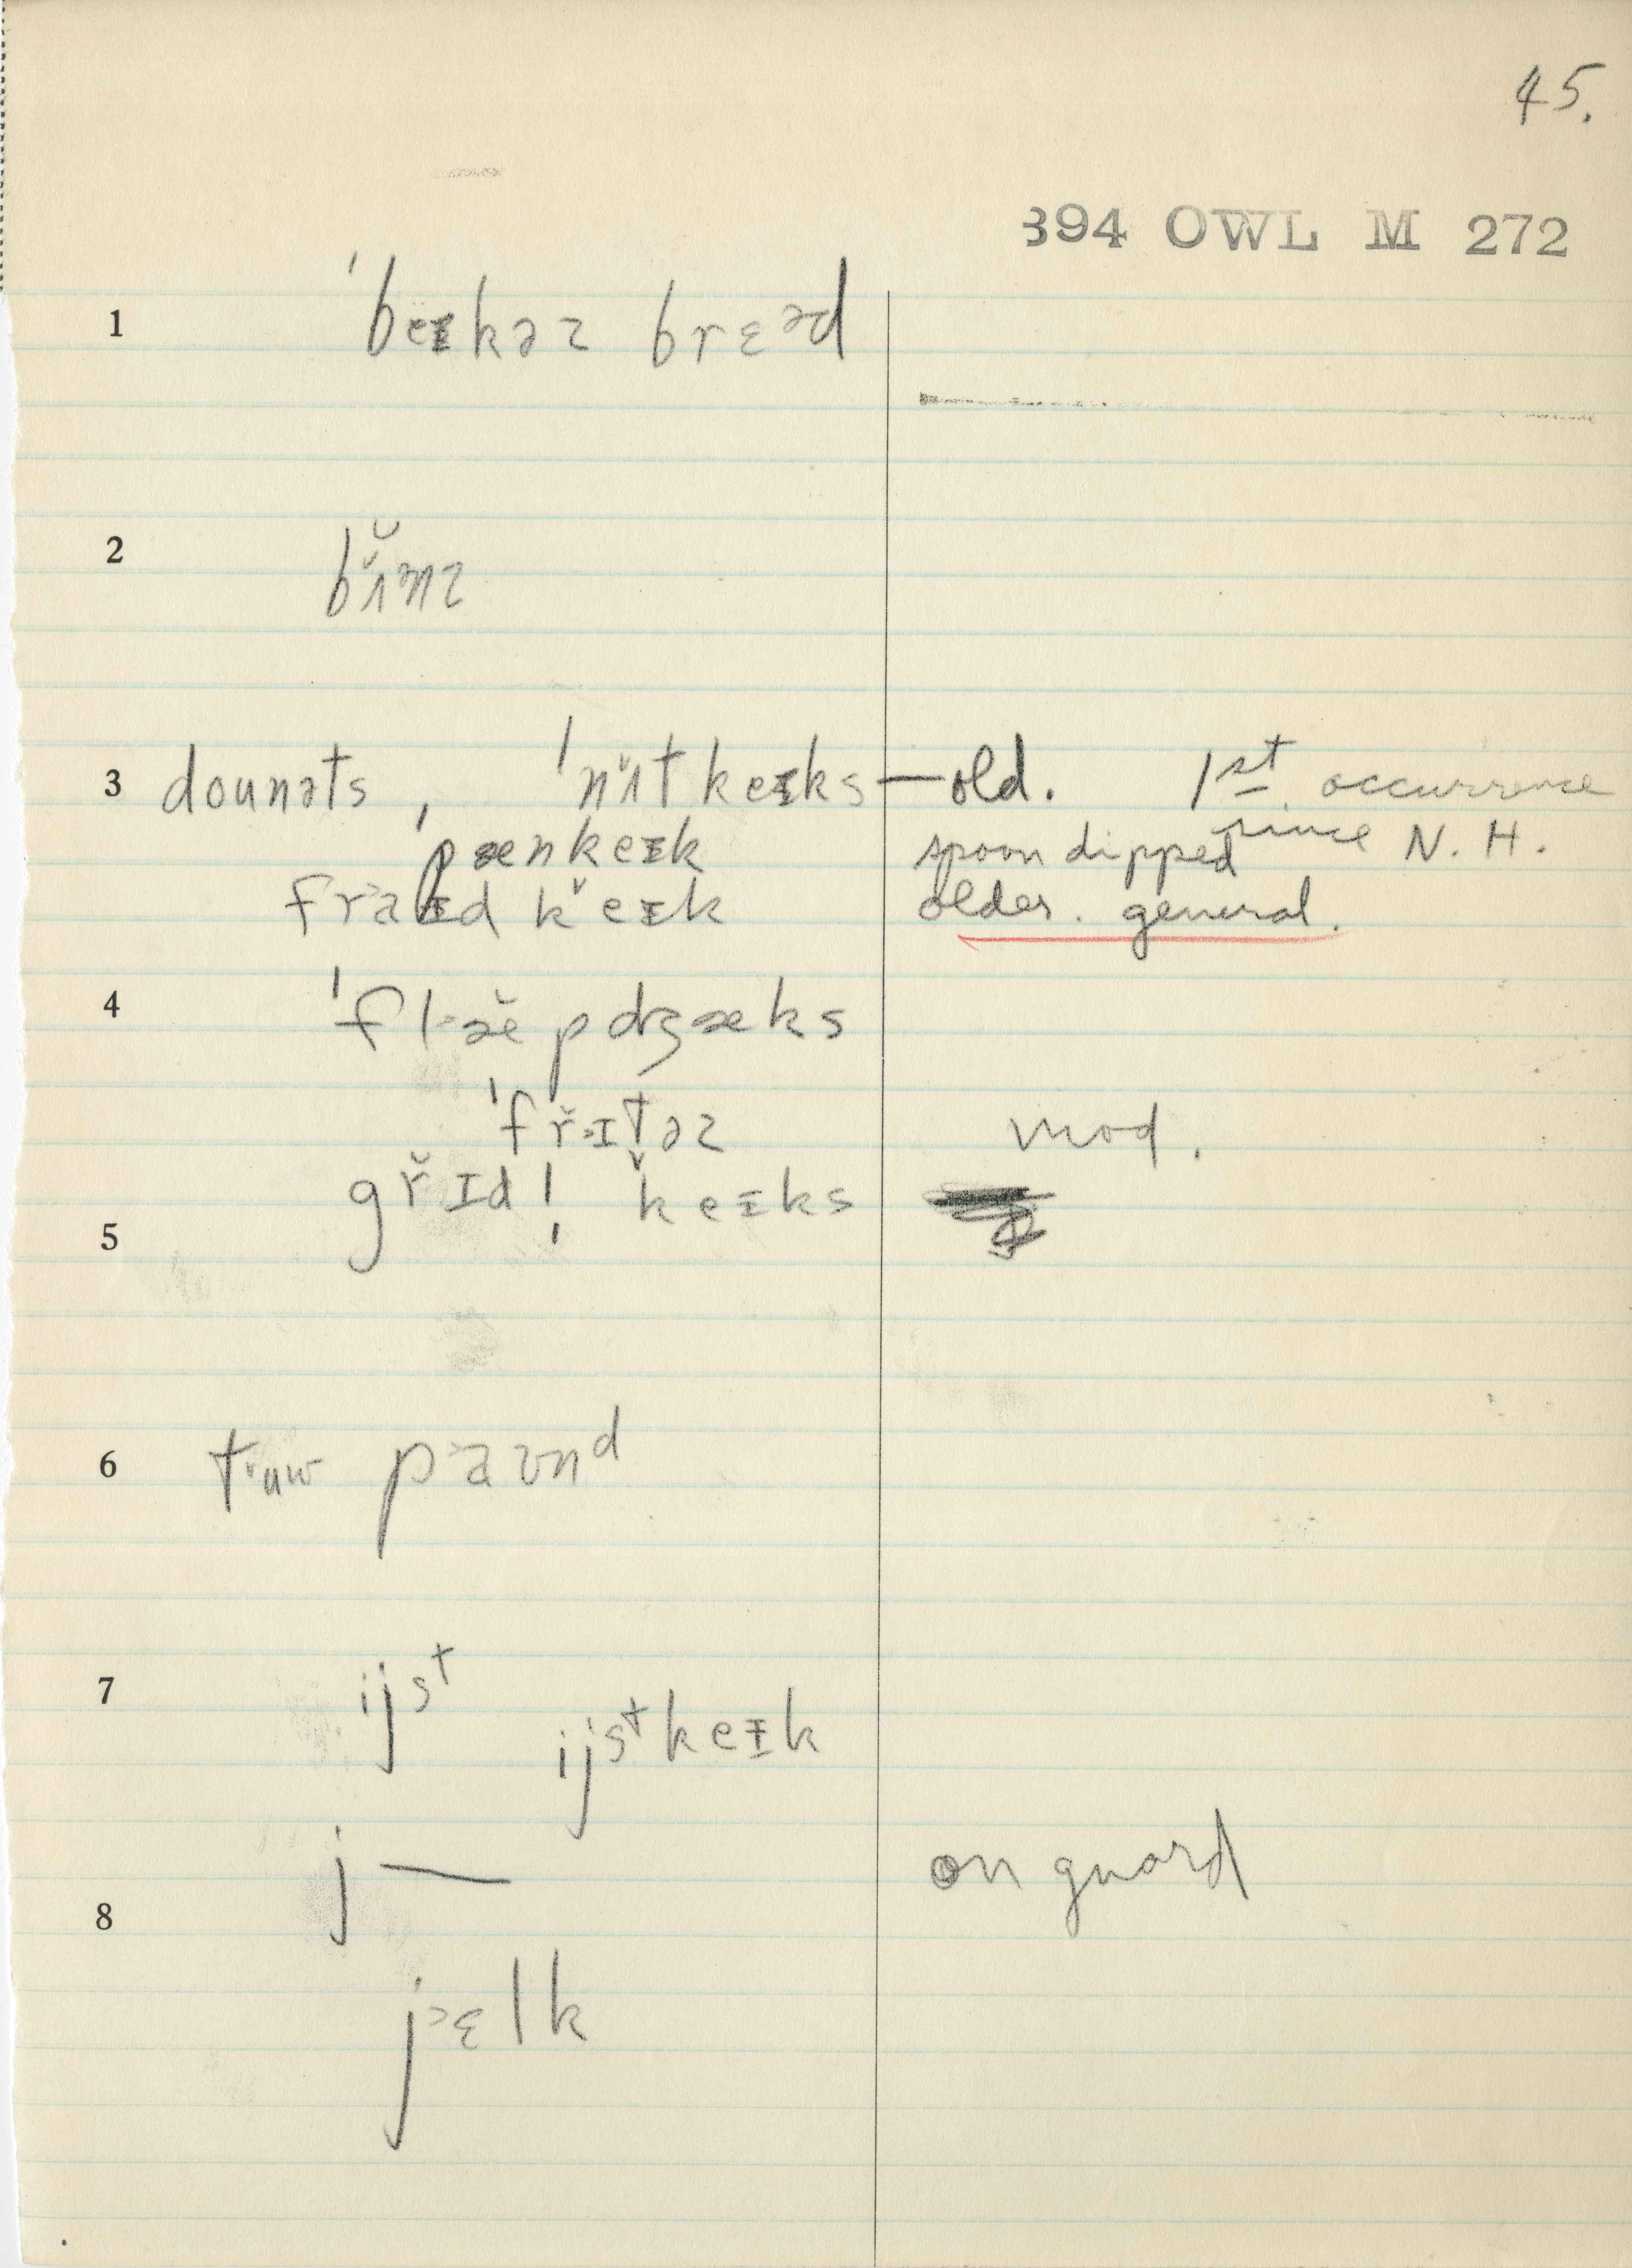 45.
394 OWL M 272
1 ˈbeɪkəz brɛᵊd
2 bʌ̆nz
3 dounəts, ˈnʌ̆t keɪks — old. 1st. occurrence
ˈpænkeɪk spoon dipped since N. H.
fra˃ɪd k̆eɪk older. general.
4 ˈfl˃æ̆pdʒæks
ˈfr̆˃ɪtəz mod.
5 gr̆ɪdl̩ k̆eɪks
6 tᵛuw p˃aʊnᵈ
7 ijsᵗ
ijsᵗkeɪk
8 j — on guard
j˃ɛlk